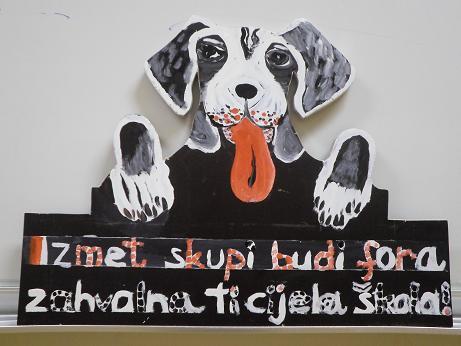 Izmet skupi budi fora
zahvalna ti cijela škola!